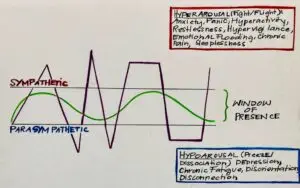 HYPERAROUSAL (Fight/Flight):
Anxiety, Panic, Hyperactivity,
Restlessness, Hypervigilance,
Emotional Flooding, Chronic
Pain, Sleeplessness
SYMPATHETIC
WINDOW OF
PRESENCE
PARASYMPATHETIC
HYPOAROUSAL (Freeze/
Dissociation) Depression,
Chronic Fatigue, Disorientation
Disconnection